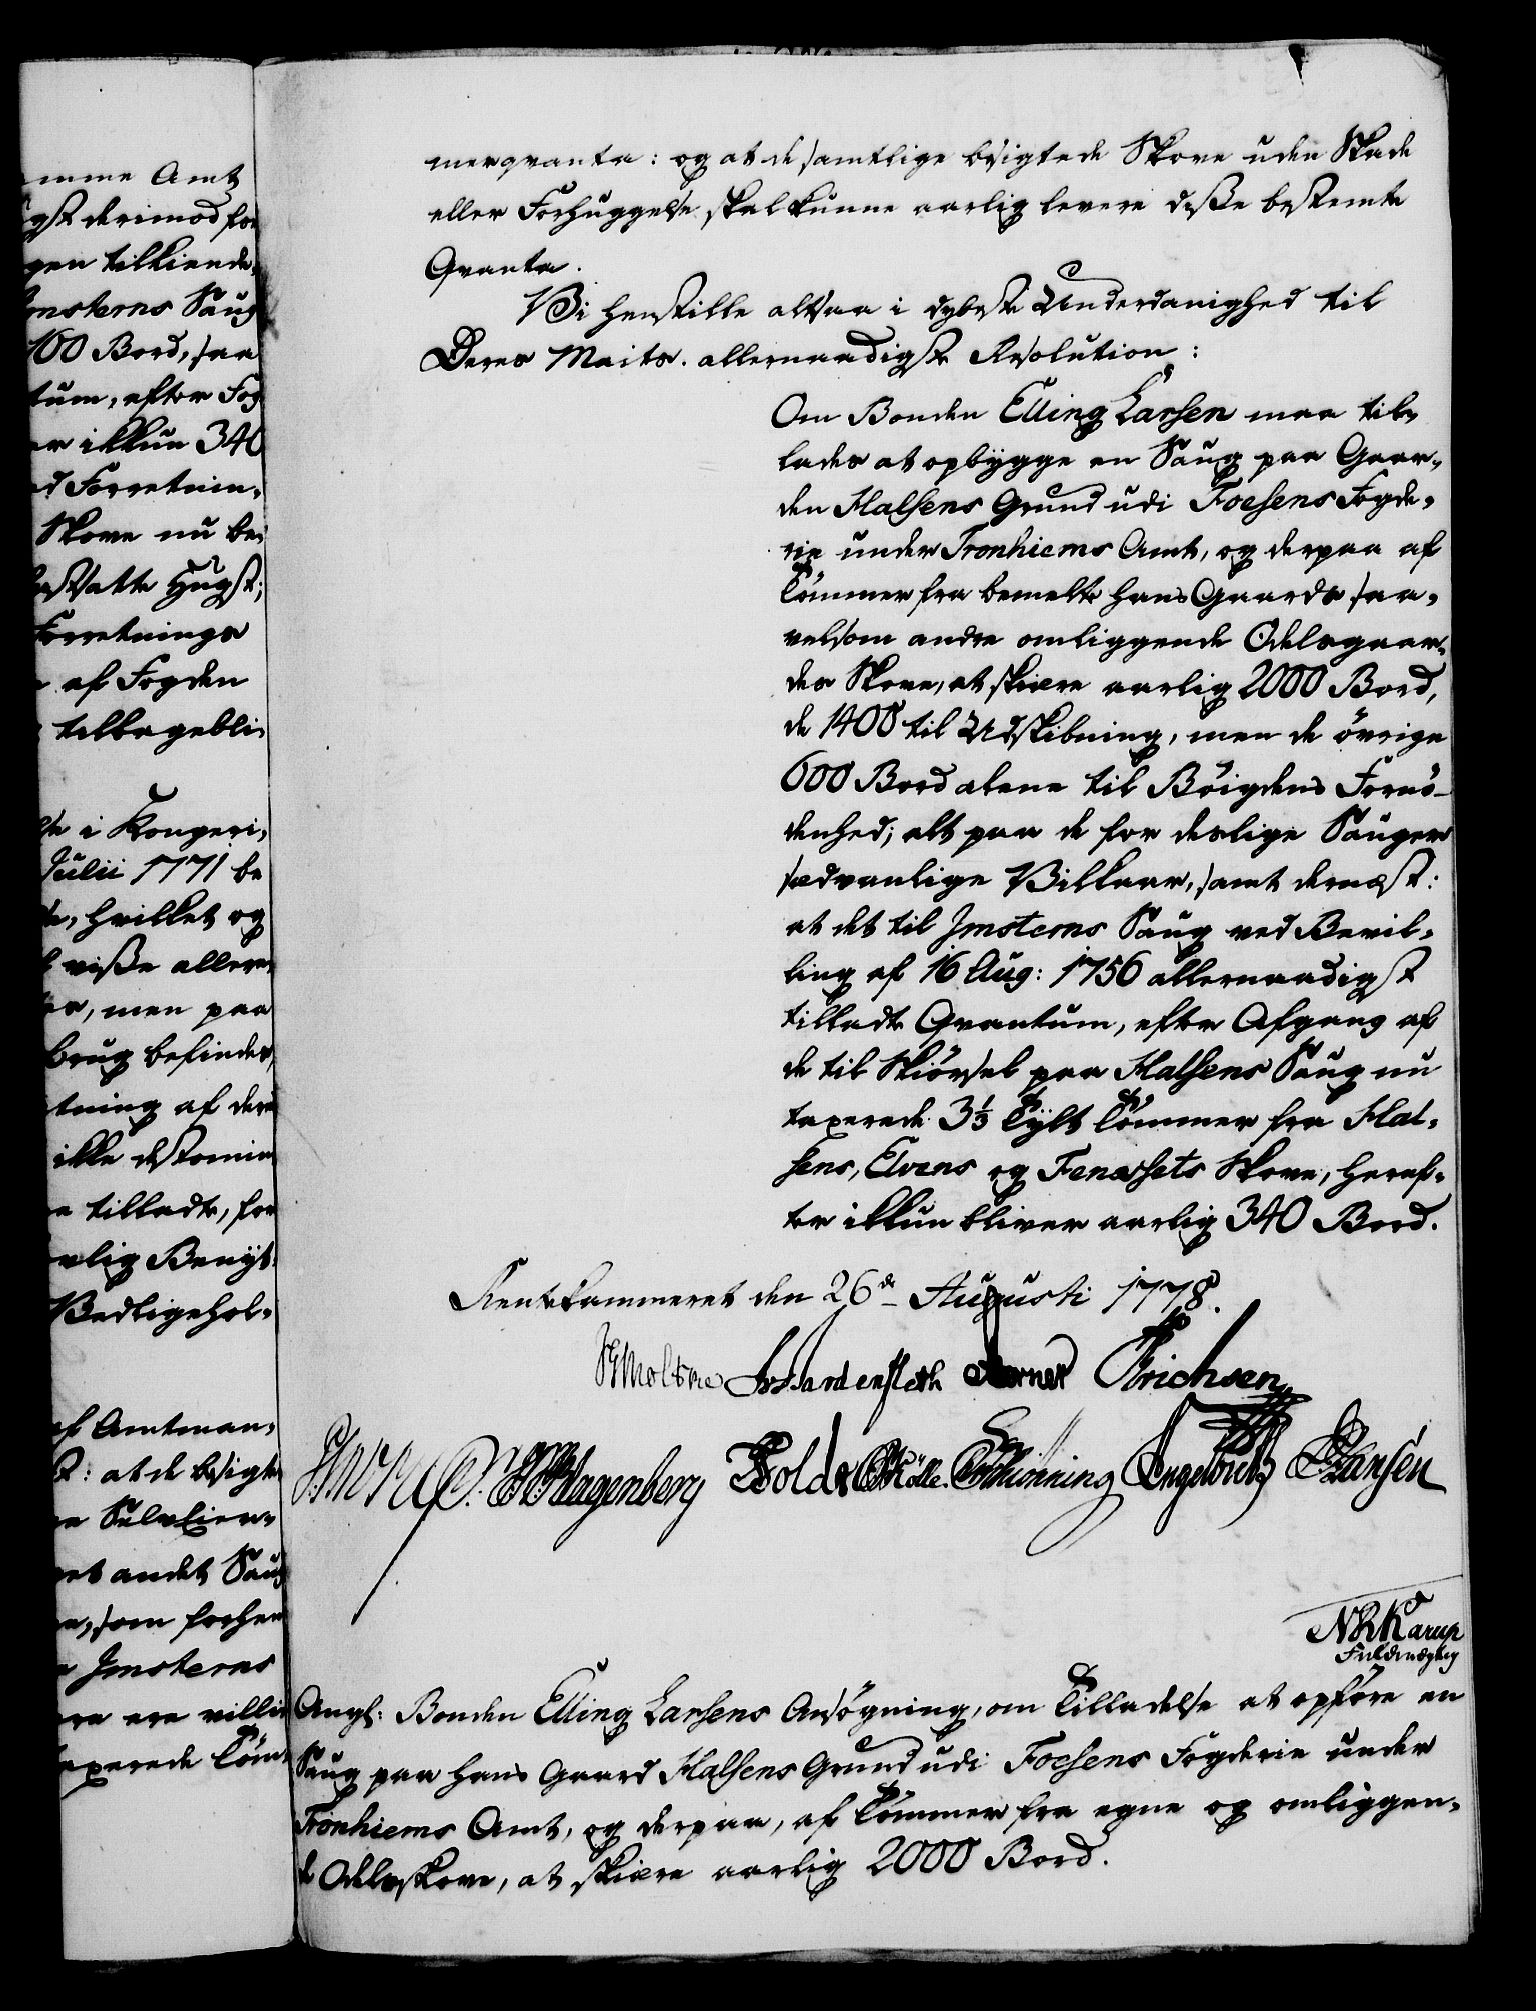 mme Amt
gst derimod for
gen tilkiende,
Imsterns Saug
100 Bord, saa
tum, efter Fog
er ikkun 340
ed Forretnin,
Skove nu be,
fastsatte Hugst;
Forretnings
af Fogden
tilbagebli,
i Kongeri,
Julii 1771 be
hvilket og
visse aller,
men paa
brug befindes,
tning af der
ikke destomin
tilladte, for
Benyt,
Vedligehol,
af Amtman,
at de besigte
et andet Saug
som forhen
Imsterns
ere villi
taxerede Töm,
merqvanta: og at de samtlige besigtede Skove uden Skade
eller Forhuggelse skal kunne aarlig levere disse bestemte
Qvanta.
Vi henstille altsaa i dybeste Underdanighed til
Deres Maits. allernaadigste Resolution:
Om Bonden Elling Larsen maa til,
lades at opbygge en Saug paa Gaar,
den Halsens Grund udi Foesens Fogde,
rie under Tronhiems Amt, og derpaa af
Tömmer fra bemelte hans Gaards saa,
velsom andre omliggende Odelsgaar,
des Skove, at skiære aarlig 2000 Bord,
de 1400 til Udskibning, men de övrige
600 Bord alene til Böigdens Fornö-
denhed; alt paa de for deslige Sauger
sædvanlige Vilkaar, samt dernæst:
at det til Imsterns Saug ved Bevil,
ling af 16 Aug: 1756 allernaadigst
tilladte Qvantum, efter Afgang af
de til Skiörsel paa Halsens Saug nu
taxerede 3⅓ Tylt Tömmer fra Hal,
sens, Elvens og Fenæssets Skove, heref,
ter ikkun bliver aarlig 340 Bord.
Rentekammeret den 26de Augusti 1778.
Moltke Hardenfleth Erichsen
Hagenberg Holde Mölle Schiönning Engelbreth Hansen
NRKarup
Fuldmægtig
Angl: Bonden Elling Larsens Ansögning, om Tilladelse at opföre en
Saug paa hans Gaard Halsens Grund udi Foesens Fogderie under
Tronhiems Amt, og derpaa, af Tömmer fra egne og omliggen,
de Odelsskove, at skiære aarlig 2000 Bord.